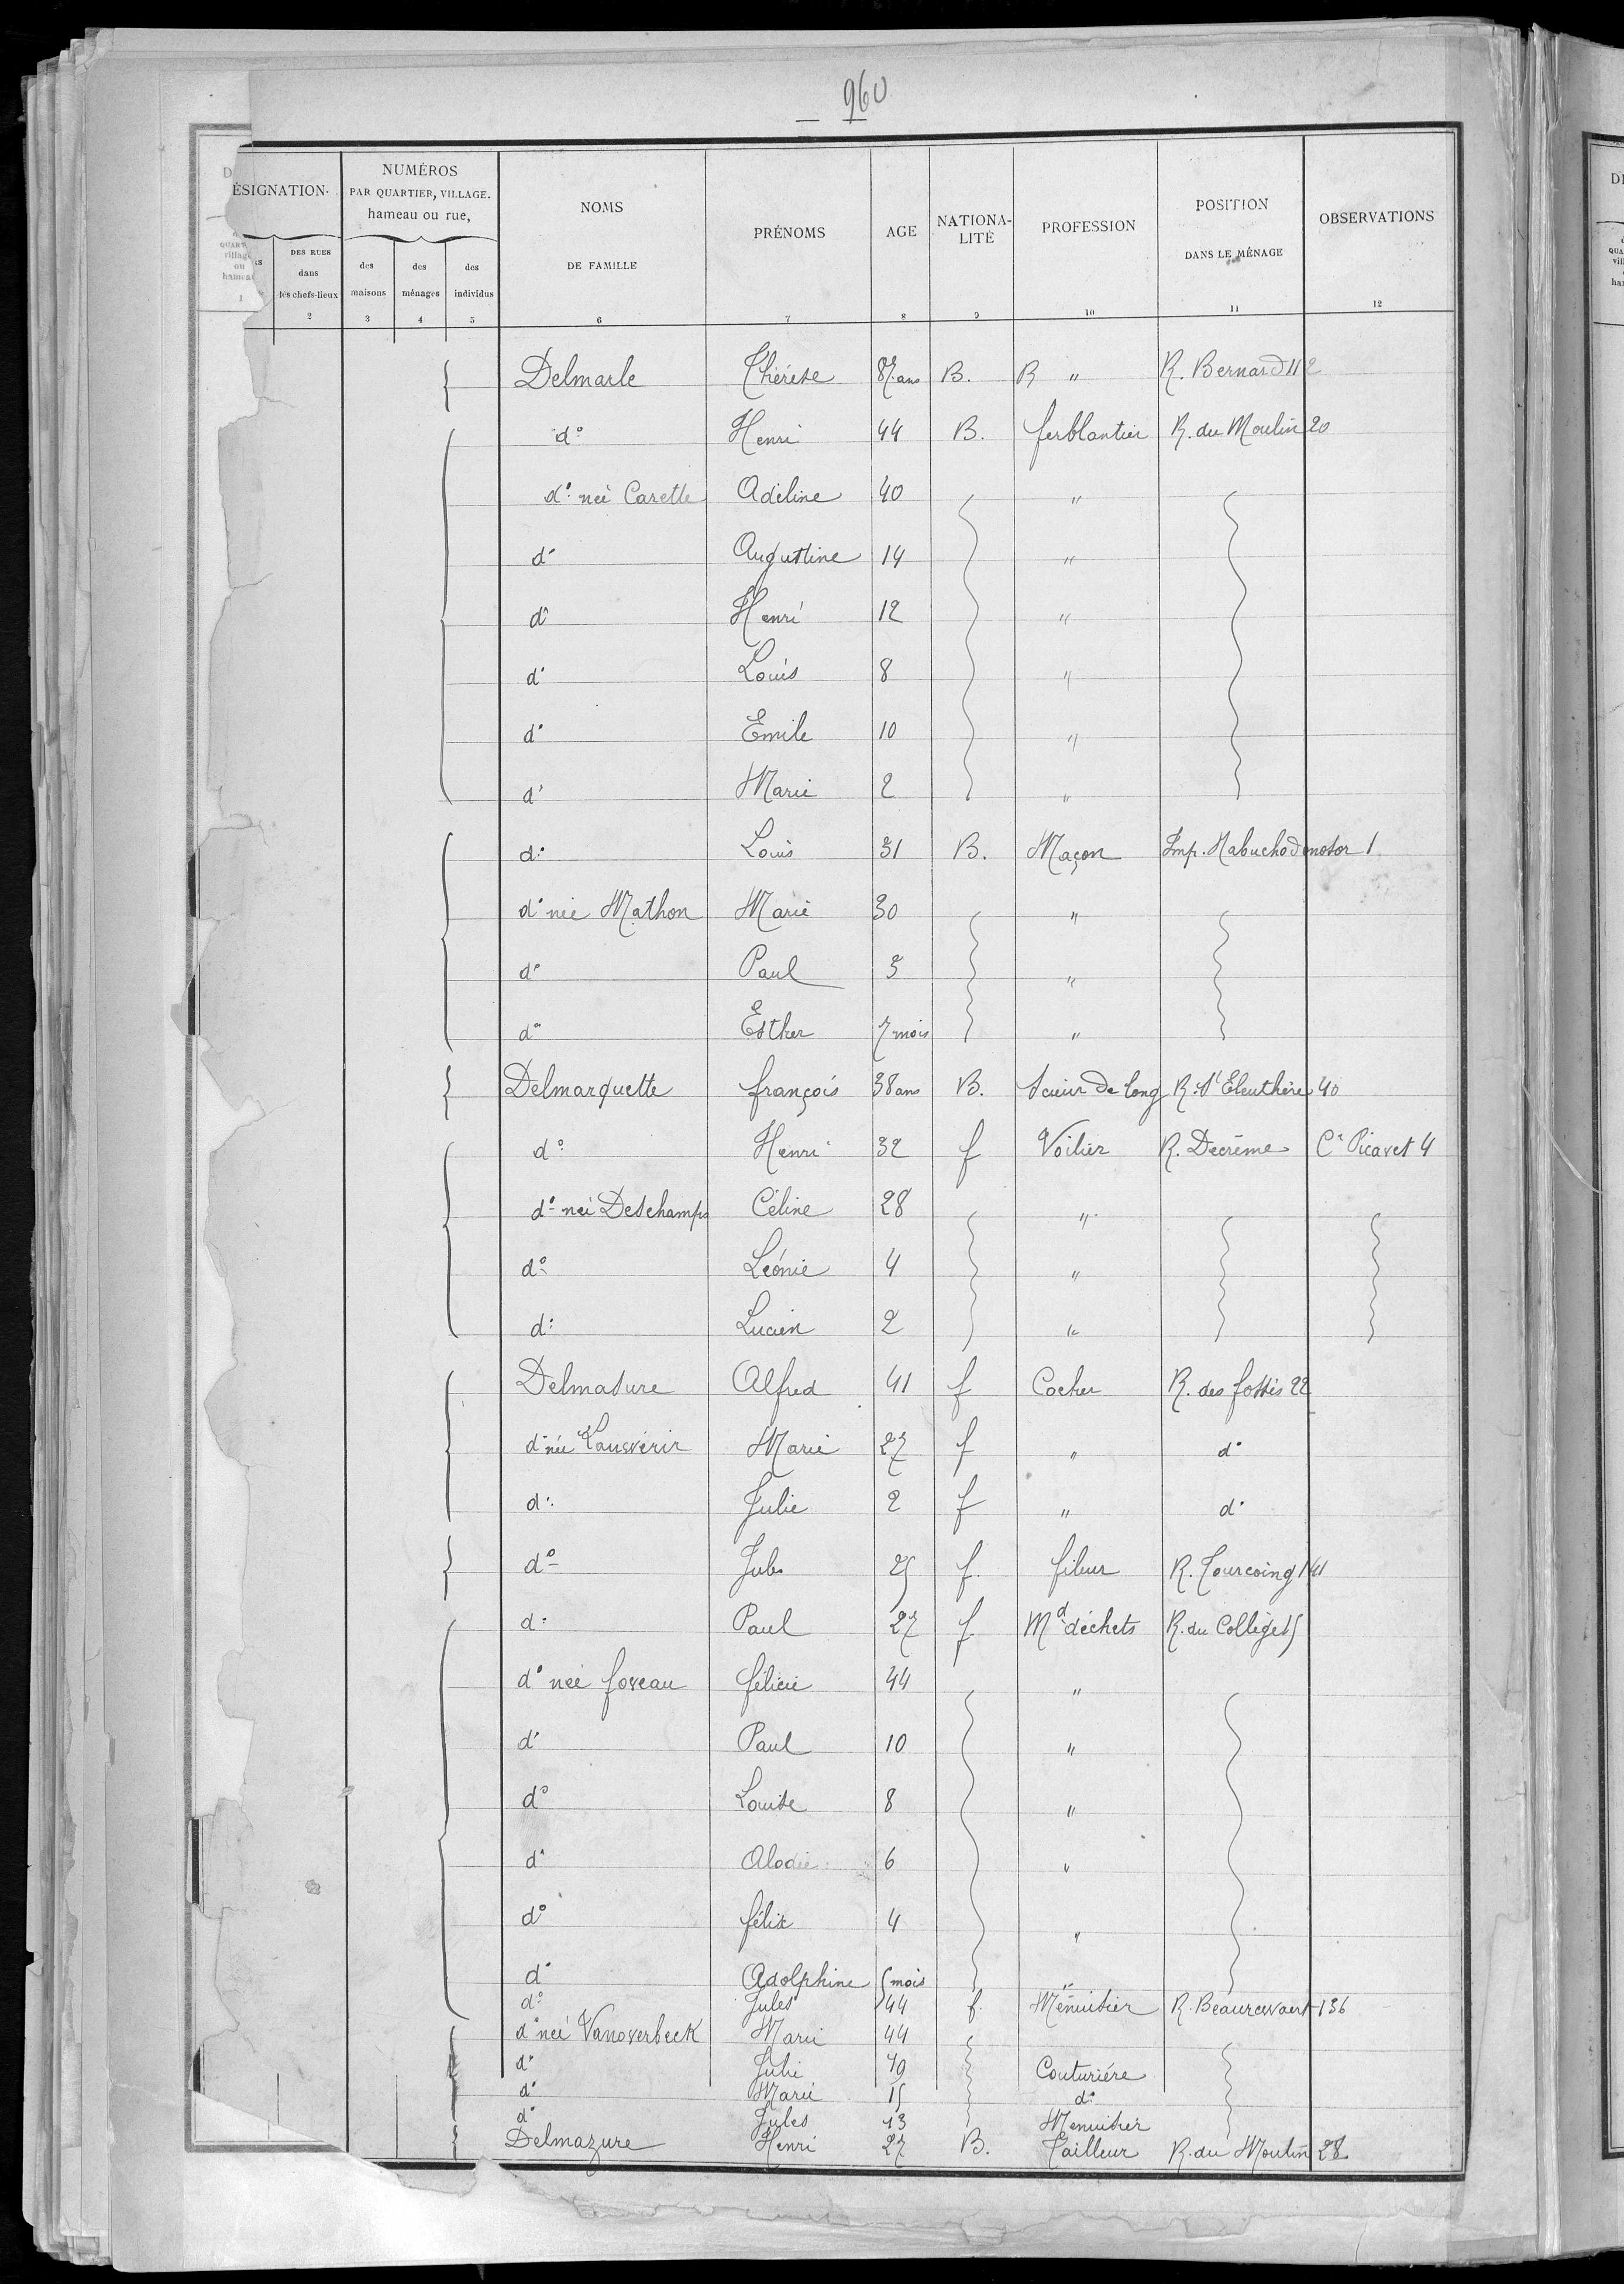 960
DÉSIGNATION
NUMÉROS
PAR QUARTIER, VILLAGE.
hameau ou rue,
NOMS
DE FAMILLE
PRÉNOMS
AGE
NATIONA-
LITÉ
PROFESSION
POSITION
DANS LE MÉNAGE
OBSERVATIONS
DES RUES
dans
les chefs-lieux
des
maisons
des
ménages
des
individus
2 3 4 5 6 7 8 9 10 11 12
Delmarle Thérèse 87 ans B. R " R. Bernard 112
d° Henri 44 B. ferblantier R. du Moulin 20
d° née Carette Adéline 40 "
d° Augustine 14 "
d° Henri 12 "
d° Louis 8 "
d° Emile 10 "
d° Marie 2 "
d° Louis 31 B. Maçon Imp. Nabuchodonosor 1
d° née Mathon Marie 30 "
d° Paul 3 "
d° Esther 7 mois "
Delmarquette françois 38 ans B. Scieur de long R. St Eleuthère 40
d° Henri 32 f Voilier R. Decrême Cr Picavet 4
d° née Deschamps Céline 28 "
d° Léonie 4 "
d° Lucien 2 "
Delmasure Alfred 41 f Cocher R. des fossés 22
d° née Marie 27 f " d°
d° Julie 2 f " d°
d° Jules 25 f. fileur R. Tourcoing 141
d° Paul 27 f Md déchets R. du Collège 15
d° née foveau félicie 44 "
d° Paul 10 "
d° Louise 8 "
d° Alodie 6 "
d° félix 4 "
d° Adolphine 5 mois "
d° Jules 44 f. Menuisier R. Beaurewaert 136
d° née Vanoverbeck Marie 44
d° Julie 19 Couturière
d° Marie 15 d°
d° Jules 13 Menuisier
Delmazure Henri 27 B. Tailleur R. du Moulin 28